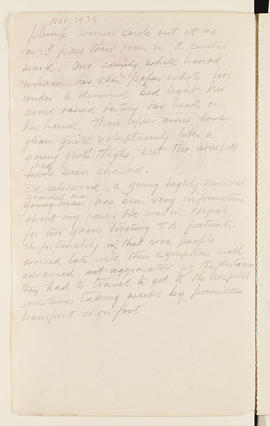 NOV. 1979
plump women smile out at me
as I pass their room in I. central
ward. One comely white haired
woman, her skin paper white lies
under a dimmed bed light her
arms raised resting her head on
her hands. Those upper arms
gleam quite voluptuously like a
young girl's thighs, but the armpits
had been shaved.
Dr. , a young highly nervous
bearded man has been very informative
about my case. He was in Nepal
for two years treating T.B. patients.
Unfortunately in that area people
arrived late with their symptoms well
advanced, not aggravated by the distance
they had to travel to get to the hospital
sometimes taking weeks by primitive
transport or on foot